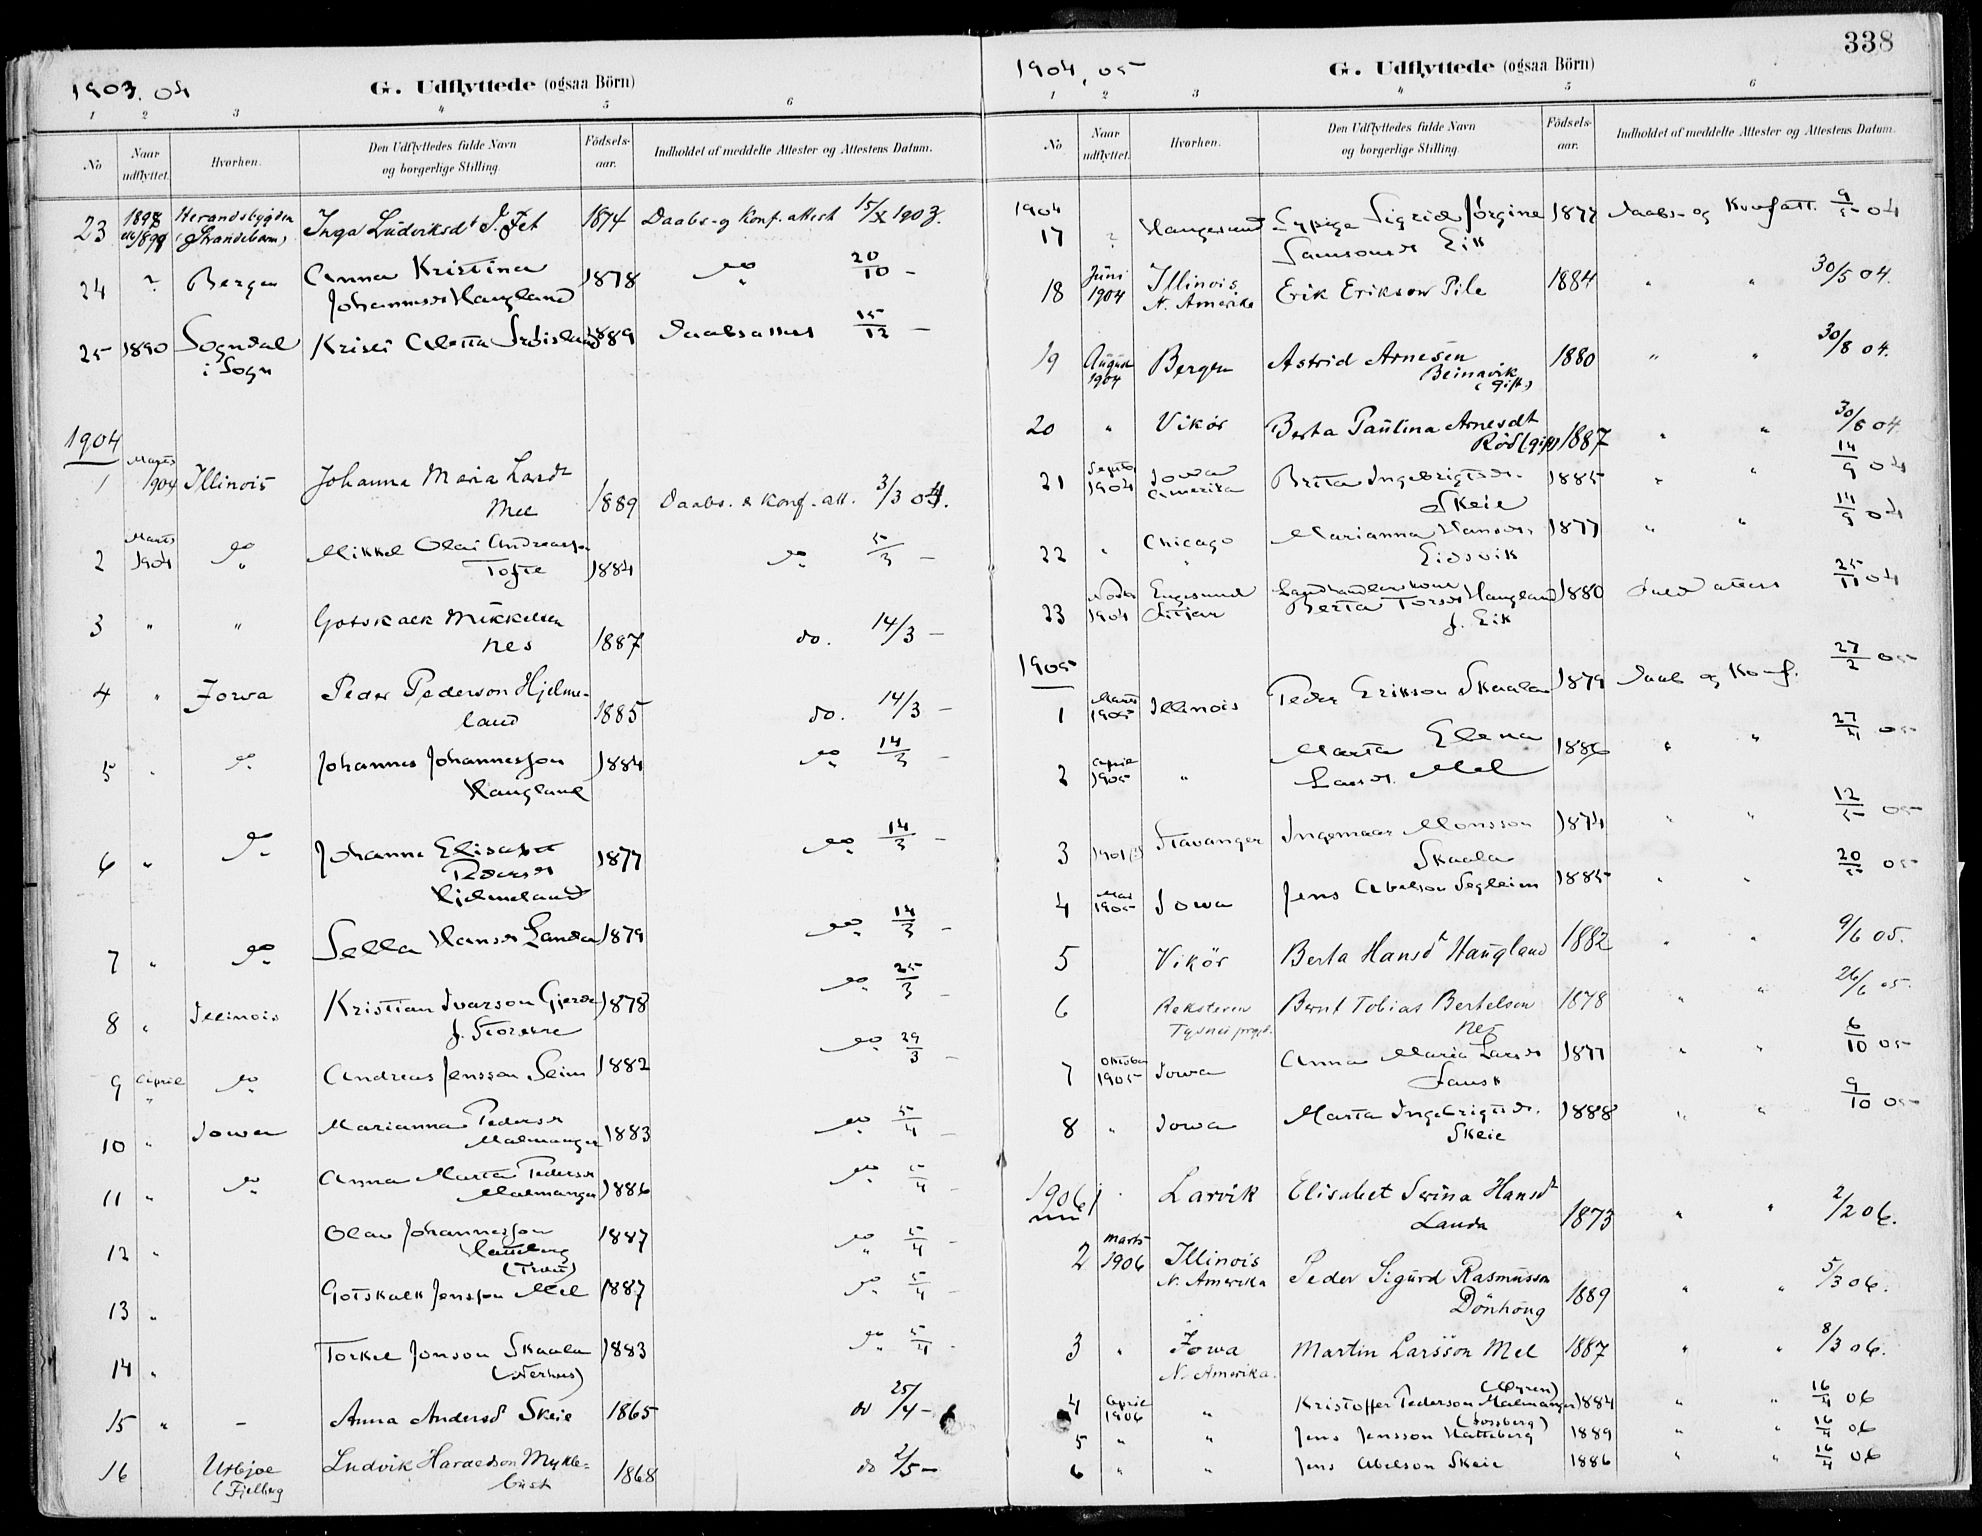 338
1903. 04
G. Udflyttede (ogsaa Börn)
1 2 3 4 5 6
No
Naar udflyttet.
Hvorhen.
Den Udflyttedes fulde Navn og borgerlige Stilling.
Födsels-aar.
Indholdet af meddelte Attester og Attestens Datum.
23 Herandsbygden (Strandebarm) Inga Ludviksdt J. Fet 1874 Daabs- og Konf. attest 15/X 1903.
24 ? Bergen Anna Kristina
Johannesdt Haugland 1878 do 20/10 -
25 1890 Sogndal
i Sogn Kristi Aletta 1889 Daabsattest 15/12 -
1904
1 Marts 1904 Illinois Johanna Maria Larsdt
Mel 1889 Daabs. & Konf. att. 3/3 04.
2 Marts 1904 do Mikkel Olai Andreassen
Tofte 1884 do 5/3 -
3 " " Gotskalk Mikkelsen
Nes 1887 do. 14/3 -
4 " Jowa Peder Pederson Hjelme-
land 1885 do. 14/3 -
5 " do Johannes Johannesson
Haugland 1884 do 14/3 -
6 " do Johanna Elisabet
Pedersdt
Hjelmeland 1877 do 14/3 -
7 " do Sella Hansdt Landa 1879 do 14/3 -
8 " Illinois Kristian Ivarson Gjerde
f. Storevre 1878 do 25/3 -
9 April " do Andreas Jensson Seim 1882 do 29/3 -
10 " Iowa Marianna Pedersdt
Malmanger 1883 do 5/4 -
11 " do Anna Marta Pedersdt
Malmanger 1886 do 5/4 -
12 " Olav Johannesson
Hatteberg
1887 do 5/4 -
13 " Gotskalk Jensson Mel 1887 do 5/4 -
14 " Torkel Jonson Skaala
1883 do 5/4 -
15 " - Anna Andersd Skeie 1865 do 25/4 -
16 Utbjoe
(Fjelberg Ludvik Haraldson Mykle-
bust 1868 do 2/5 -
1904, 05
G. Udflyttede (ogsaa Börn)
1 2 3 4 5 6
No.
Naar udflyttet.
Hvorhen.
Den Udflyttedes fulde Navn og borgerlige Stilling.
Födsels-aar.
Indholdet af meddelte Attester og Attestens Datum.
1904
17 ? Haugesund Sypige Sigrid Jørgine
Samsonsdt Eik 1877 Daabs- og Konfatt. 9/5 04
18 Juni 1904 Illinois
N. Amerika Erik Erikson Pile 1884 " " 30/5 04.
19 August 1904 Bergen Astrid Arnesen
Beinavik
(gift) 1880 " " 30/8 04.
20 " Vikör Berta Paulina Arnesdt
Röd (gift) 1887 " " 30/8 04.
21 Septbr 1904 Iowa
Amerika Brita Ingebrigtsdt.
Skeie 1885 " " 14/9 04
22 " Chicago
" Marianna Hansdt.
Eidsvik 1877 " " 14/9 04
23 Novbr 1904 Engesund
Fitjar Landhandlerkone
Berta Torsdt Haugland
f. Eik 1880 attest 25/11 04
1905
1 Marts 1905 Illinois Peder Erikson Skaala 1879 Daab og Konf. 27/2 05
2 April 1905 " Marta Elena
Larsdt. Mel 1886 " " 27/4 05
3 1901(?) Stavanger Ingemaar Monsson
Skaala 1874 " " 12/5 05
4 Mai 1905 Iowa Jens Abelson Segleim 1885 " " 20/5 05
5 Vikör Berta Hansdt Haugland 1882 " " 9/6 05.
6 Reksteren
Tysnes prgj. Bernt Tobias Bertelsen
Nes 1878 " " 26/6 05.
7 Oktober 1905 Iowa Anna Maria Larsdt
Sausk 1877 " " 6/10 05
8 " Iowa Marta Ingebrigtsdt.
Skeie 1888 " " 9/10 05
1906
1 Larvik Elisabet Serina Hansdt
Landa 1873 " " 2/2 06.
2 Marts 1906 Illinois
N. Amerika Peder Sigurd Rasmusson
Dönhaug 1889 " " 5/3 06.
3 " Jowa
N. Amerika. Martin Larsson Mel 1887 " " 8/3 06.
4 April 1906 " Kristoffer Pederson Malmanger (Øyren) 1884 " " 16/4 06
5 " " Jens Jensson Hatteberg 1889 " " 16/4 06
6 " " Jens Abelson Skeie 1886 " " 16/4 06